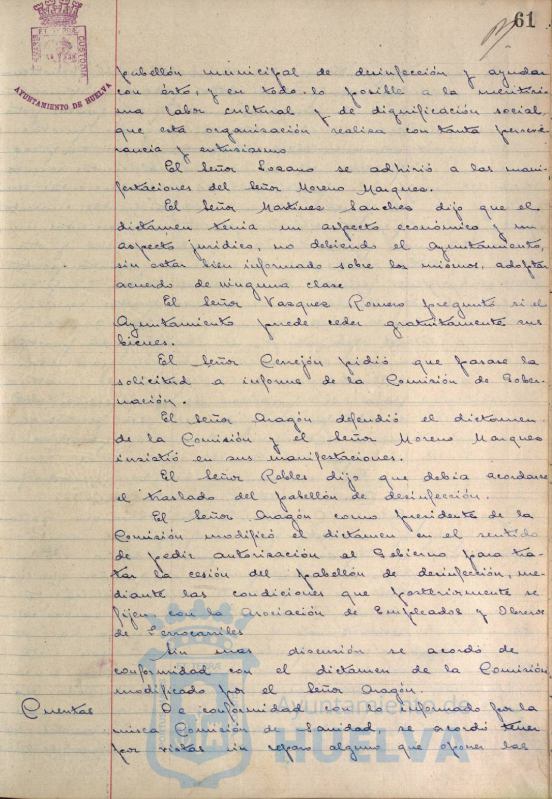 61
AYUNTAMIENTO DE HUELVA
pabellón municipal de desinfección y ayudar
con ésto, y en todo lo posible a la meritísi
ma labor cultural y de dignificación social
que está organización realiza con tanta perseve
rancia y entusiasmo
El Señor Lozano se adhirió a las mani-
festaciones del Señor Moreno Marquez.
El Señor Martínez Sanchez dijo que el
dictamen tenía un aspecto económico y un
aspecto jurídico, no debiendo el Ayuntamiento,
sin estar bien informado sobre los mismos, adoptar
acuerdo de ninguna clase
El Señor Vazquez Romero preguntó si el
Ayuntamiento puede ceder gratuitamente sus
bienes.
El Señor Cerrejón pidió que pasase la
solicitud a informe de la Comisión de Gober-
nación.
El Señor Aragón defendió el dictamen
de la Comisión y el Señor Moreno Marquez
insistió en sus manifestaciones.
El Señor Robles dijo que debía acordarse
el traslado del pabellón de desinfección.
El Señor Aragón como presidente de la
Comisión modificó el dictamen en el sentido
de pedir autorización al Gobierno para tra-
tar la cesión del pabellón de desinfección, me-
diante las condiciones que posteriormente se
fijen con la Asociación de Empleados y Obreros
de Ferrocarriles
Sin mas discusión se acordó de
conformidad con el dictamen de la Comisión,
modificado por el Señor Aragón.
Cuentas De conformidad con lo informado por la
misma Comisión de Sanidad, se acordó tener
por vistas sin reparo alguno que oponer las
Ayuntamiento de
HUELVA